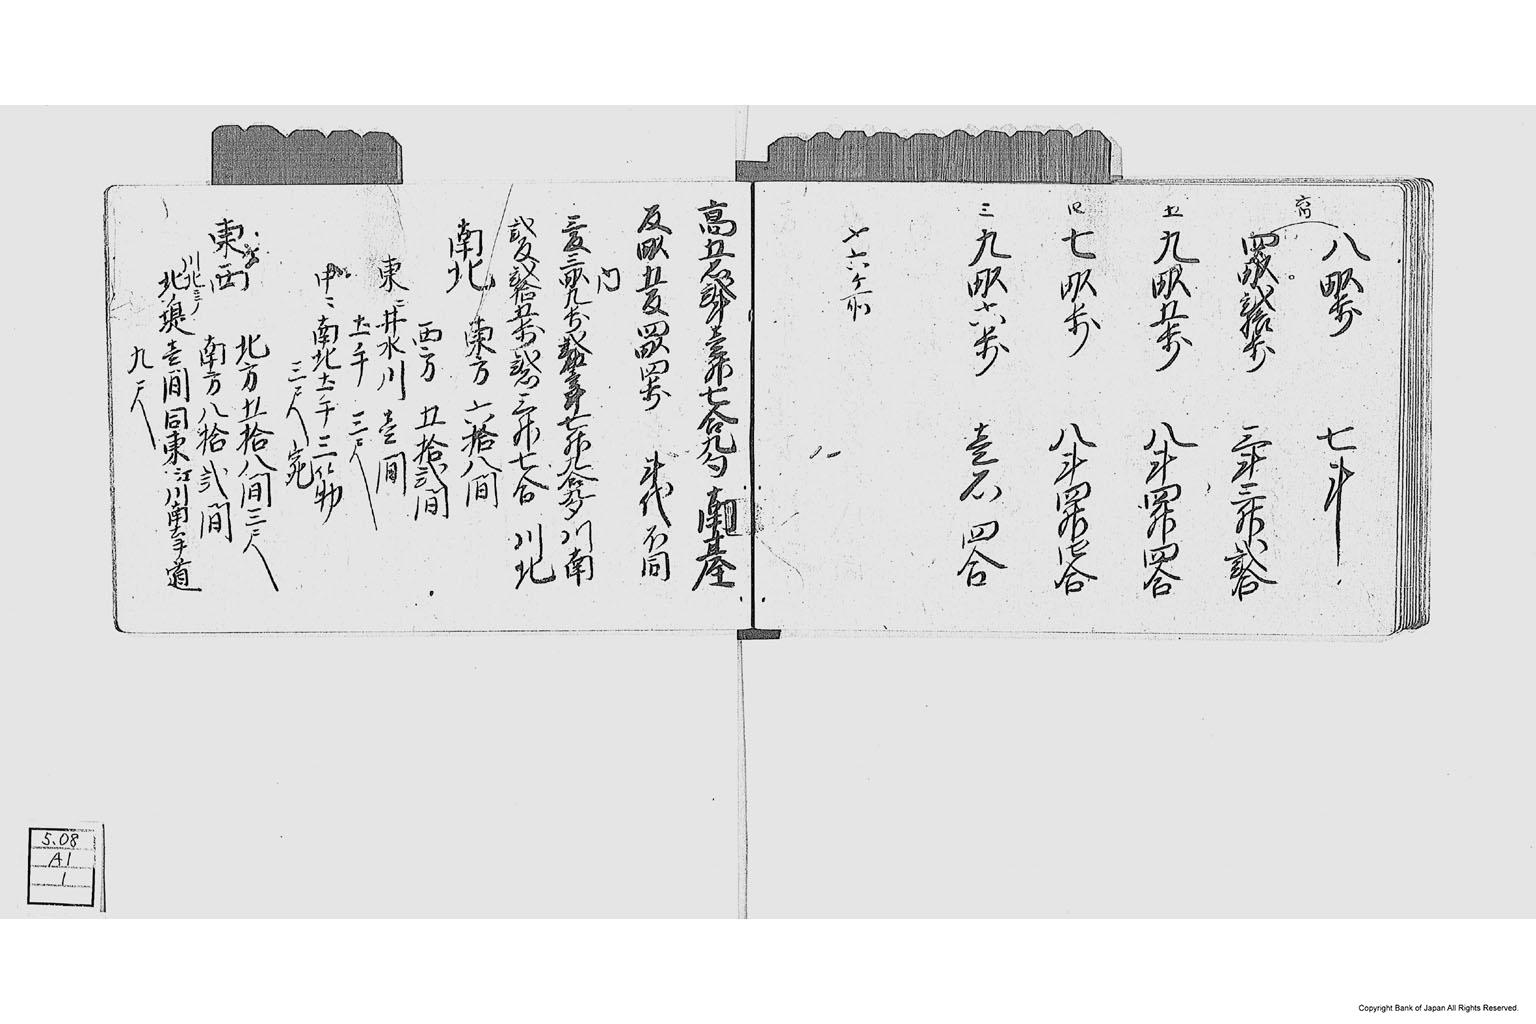 八畝歩 七斗
四畝弐拾歩 三斗三升弐合
五 九畝五歩 八斗四升四合
四 七畝歩 八斗四升七合
三 九畝六歩 壱石四合
〆六ヶ所
高五石弐斗壱升七合九勺 南基
反畝五反四畝四歩 斗代不同
内
三反三畝九歩 七升九合 川南
弐反弐拾五歩 弐石三升七合 川北
南北 東方 六拾八間
西方 五拾弐間
東ニ井水川 壱間
土手 三尺
中ニ南北土手三筋
三尺宛
東西
北方五拾八間三尺
南方八拾弐間
川北ニ
北堤壱間同東江川南土手道
九尺
5.08
A1
1
Copyright Bank of Japan All Rights Reserved.